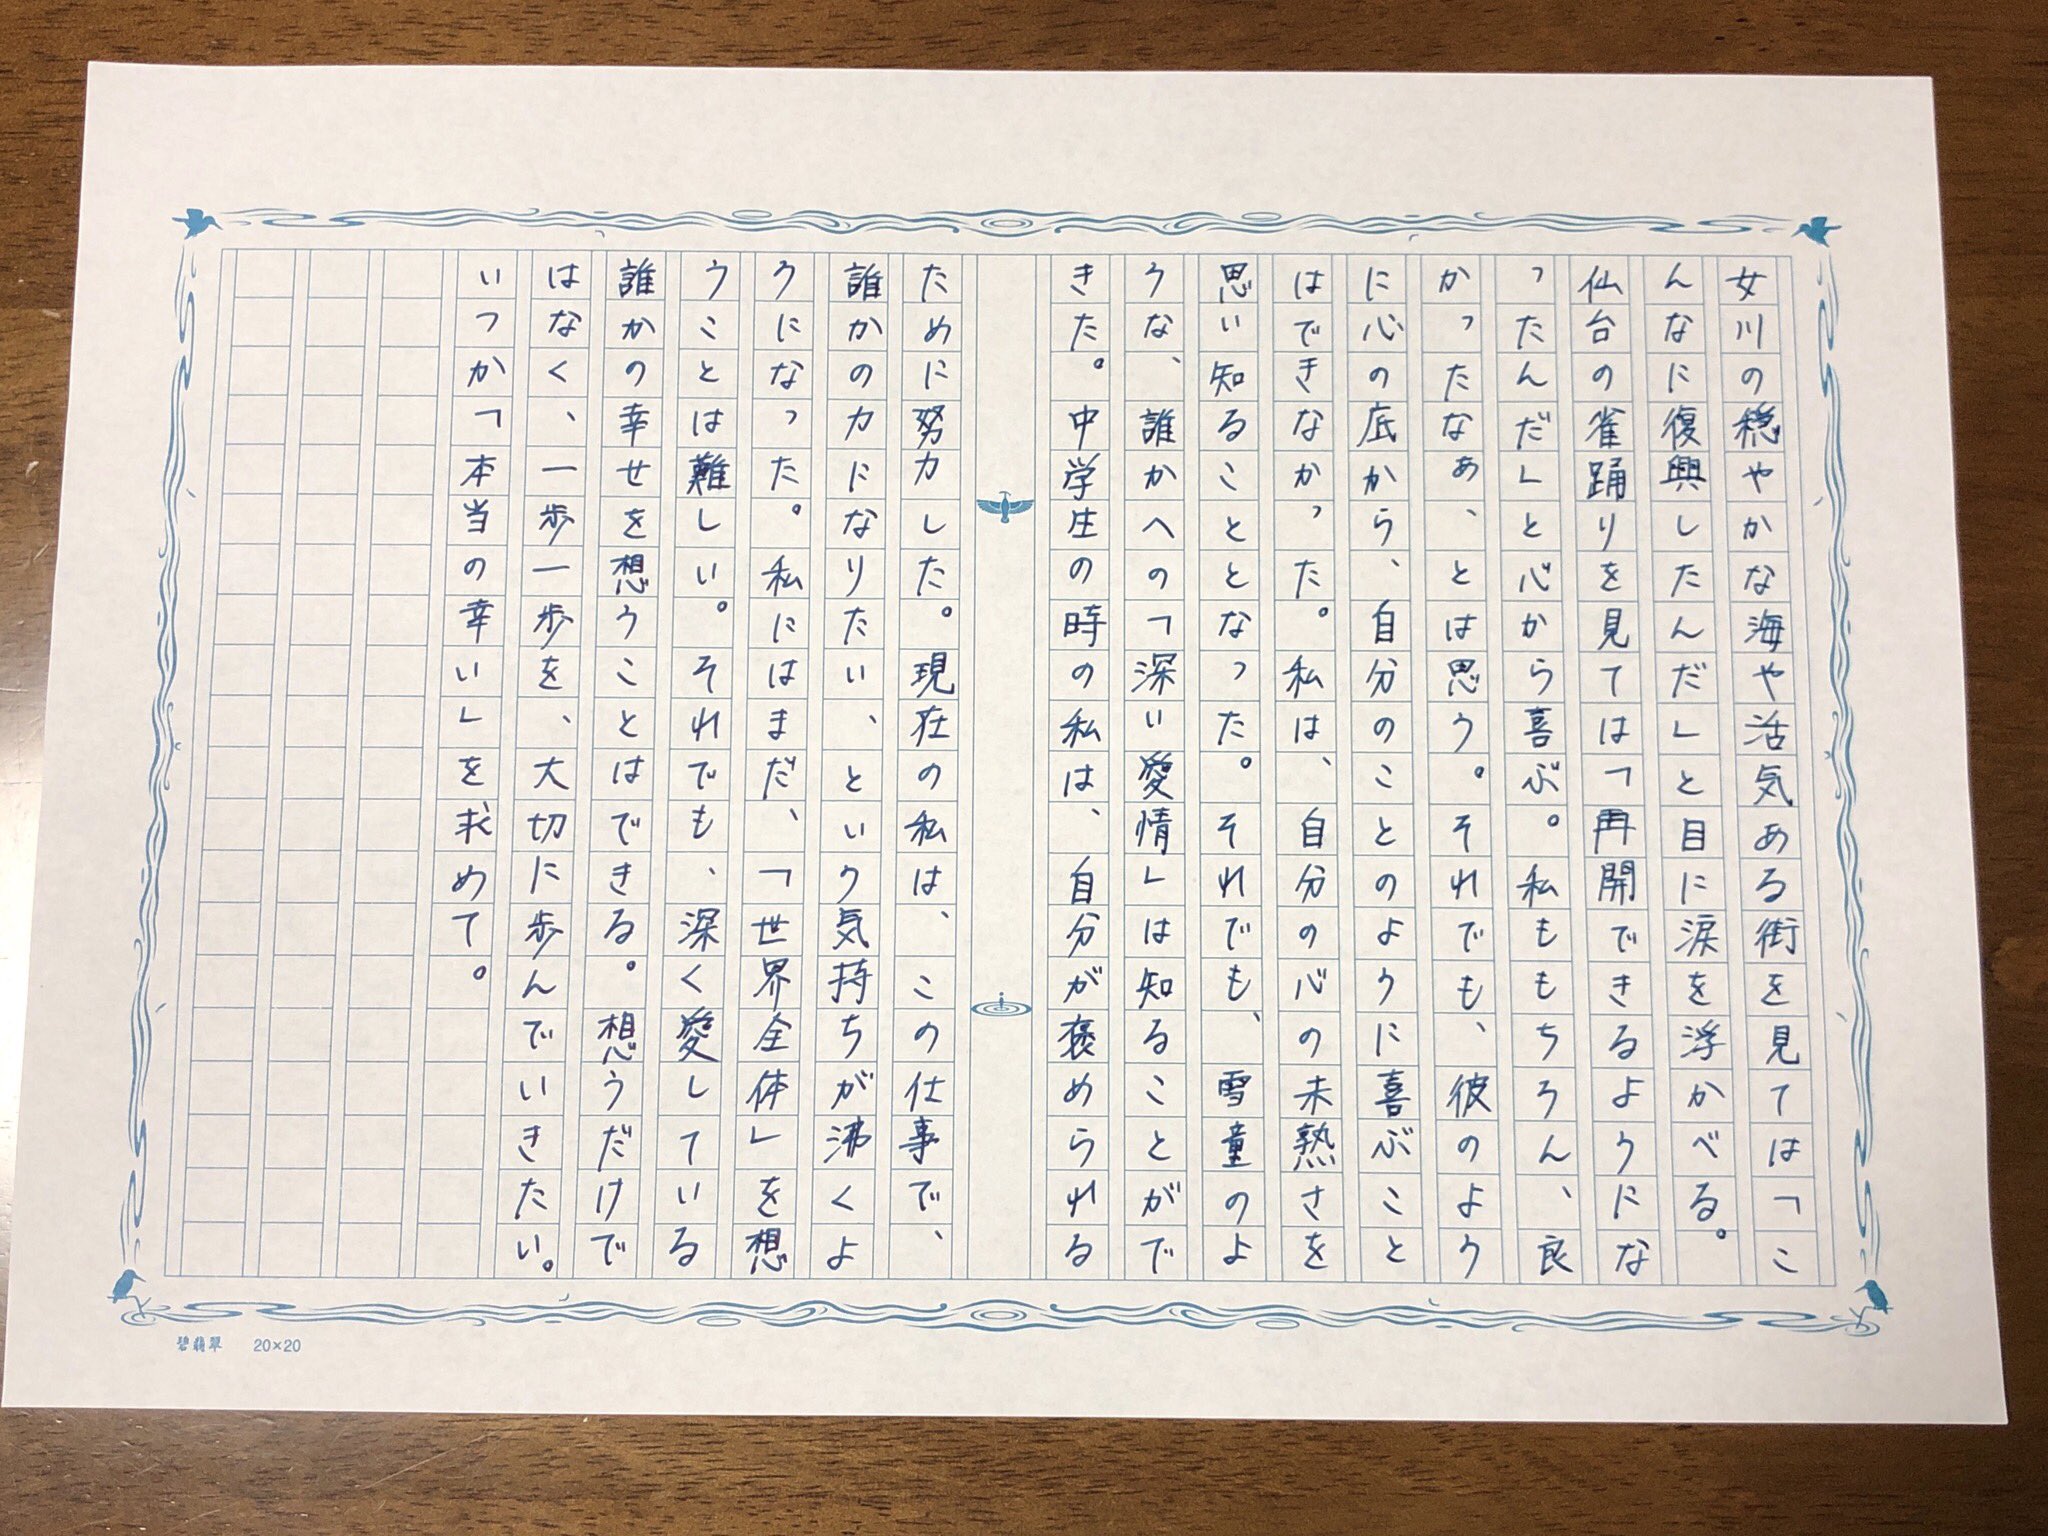 女川の穏やかな海や活気ある街を見ては「こ
んなに復興したんだ」と目に涙を浮かべる。
仙台の雀踊りを見ては「再開できるようにな
ったんだ」と心から喜ぶ。私ももちろん、良
かったなぁ、とは思う。それでも、彼のよう
に心の底から、自分のことのように喜ぶこと
はできなかった。私は、自分の心の未熟さを
思い知ることとなった。それでも、雪童のよ
うな、誰かへの「深い愛情」は知ることがで
きた。中学生の時の私は、自分が褒められる
ために努力した。現在の私は、この仕事で、
誰かの力になりたい、という気持ちが沸くよ
うになった。私にはまだ、「世界全体」を想
うことは難しい。それでも、深く愛している
誰かの幸せを想うことはできる。想うだけで
はなく、一歩一歩を、大切に歩んでいきたい。
いつか「本当の幸い」を求めて。
碧翡翠 20×20